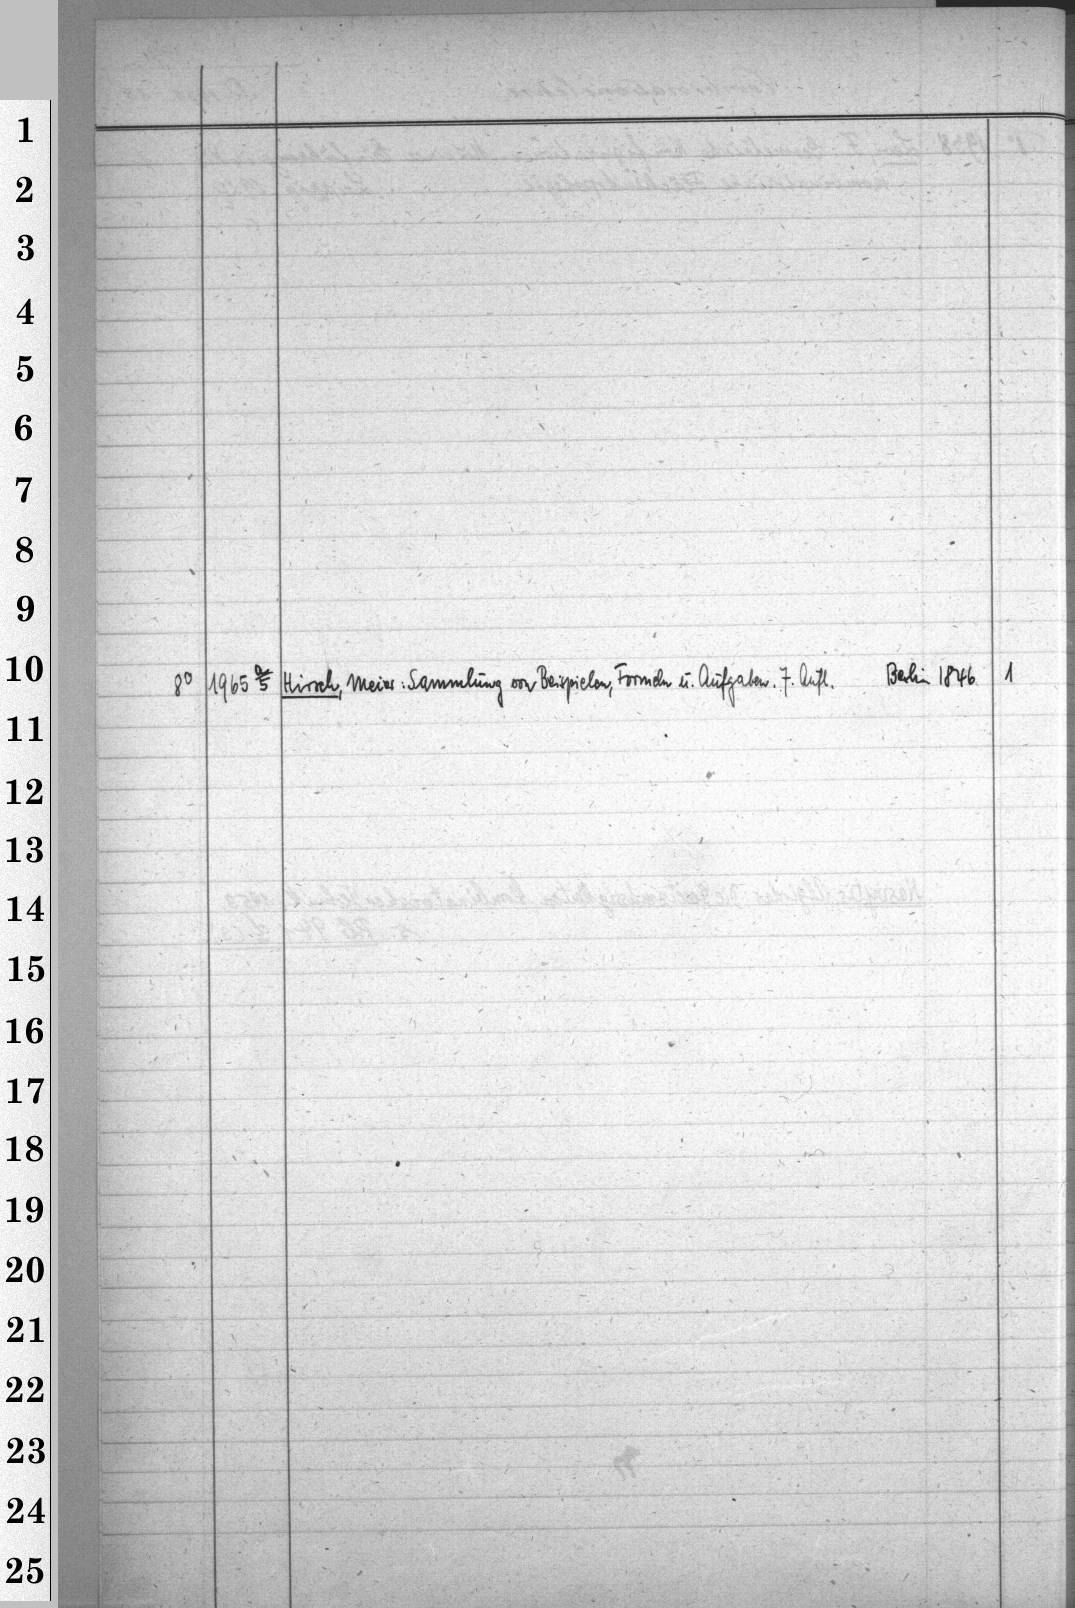 1
2
3
4
5
6
7
8
9
10
8° 1965 Hirsch, Meier: Sammlung von Beispielen, Formeln u. Aufgaben. 7. Aufl. Berlin 1846 1
11
12
13
14
15
16
17
18
19
20
21
22
23
24
25